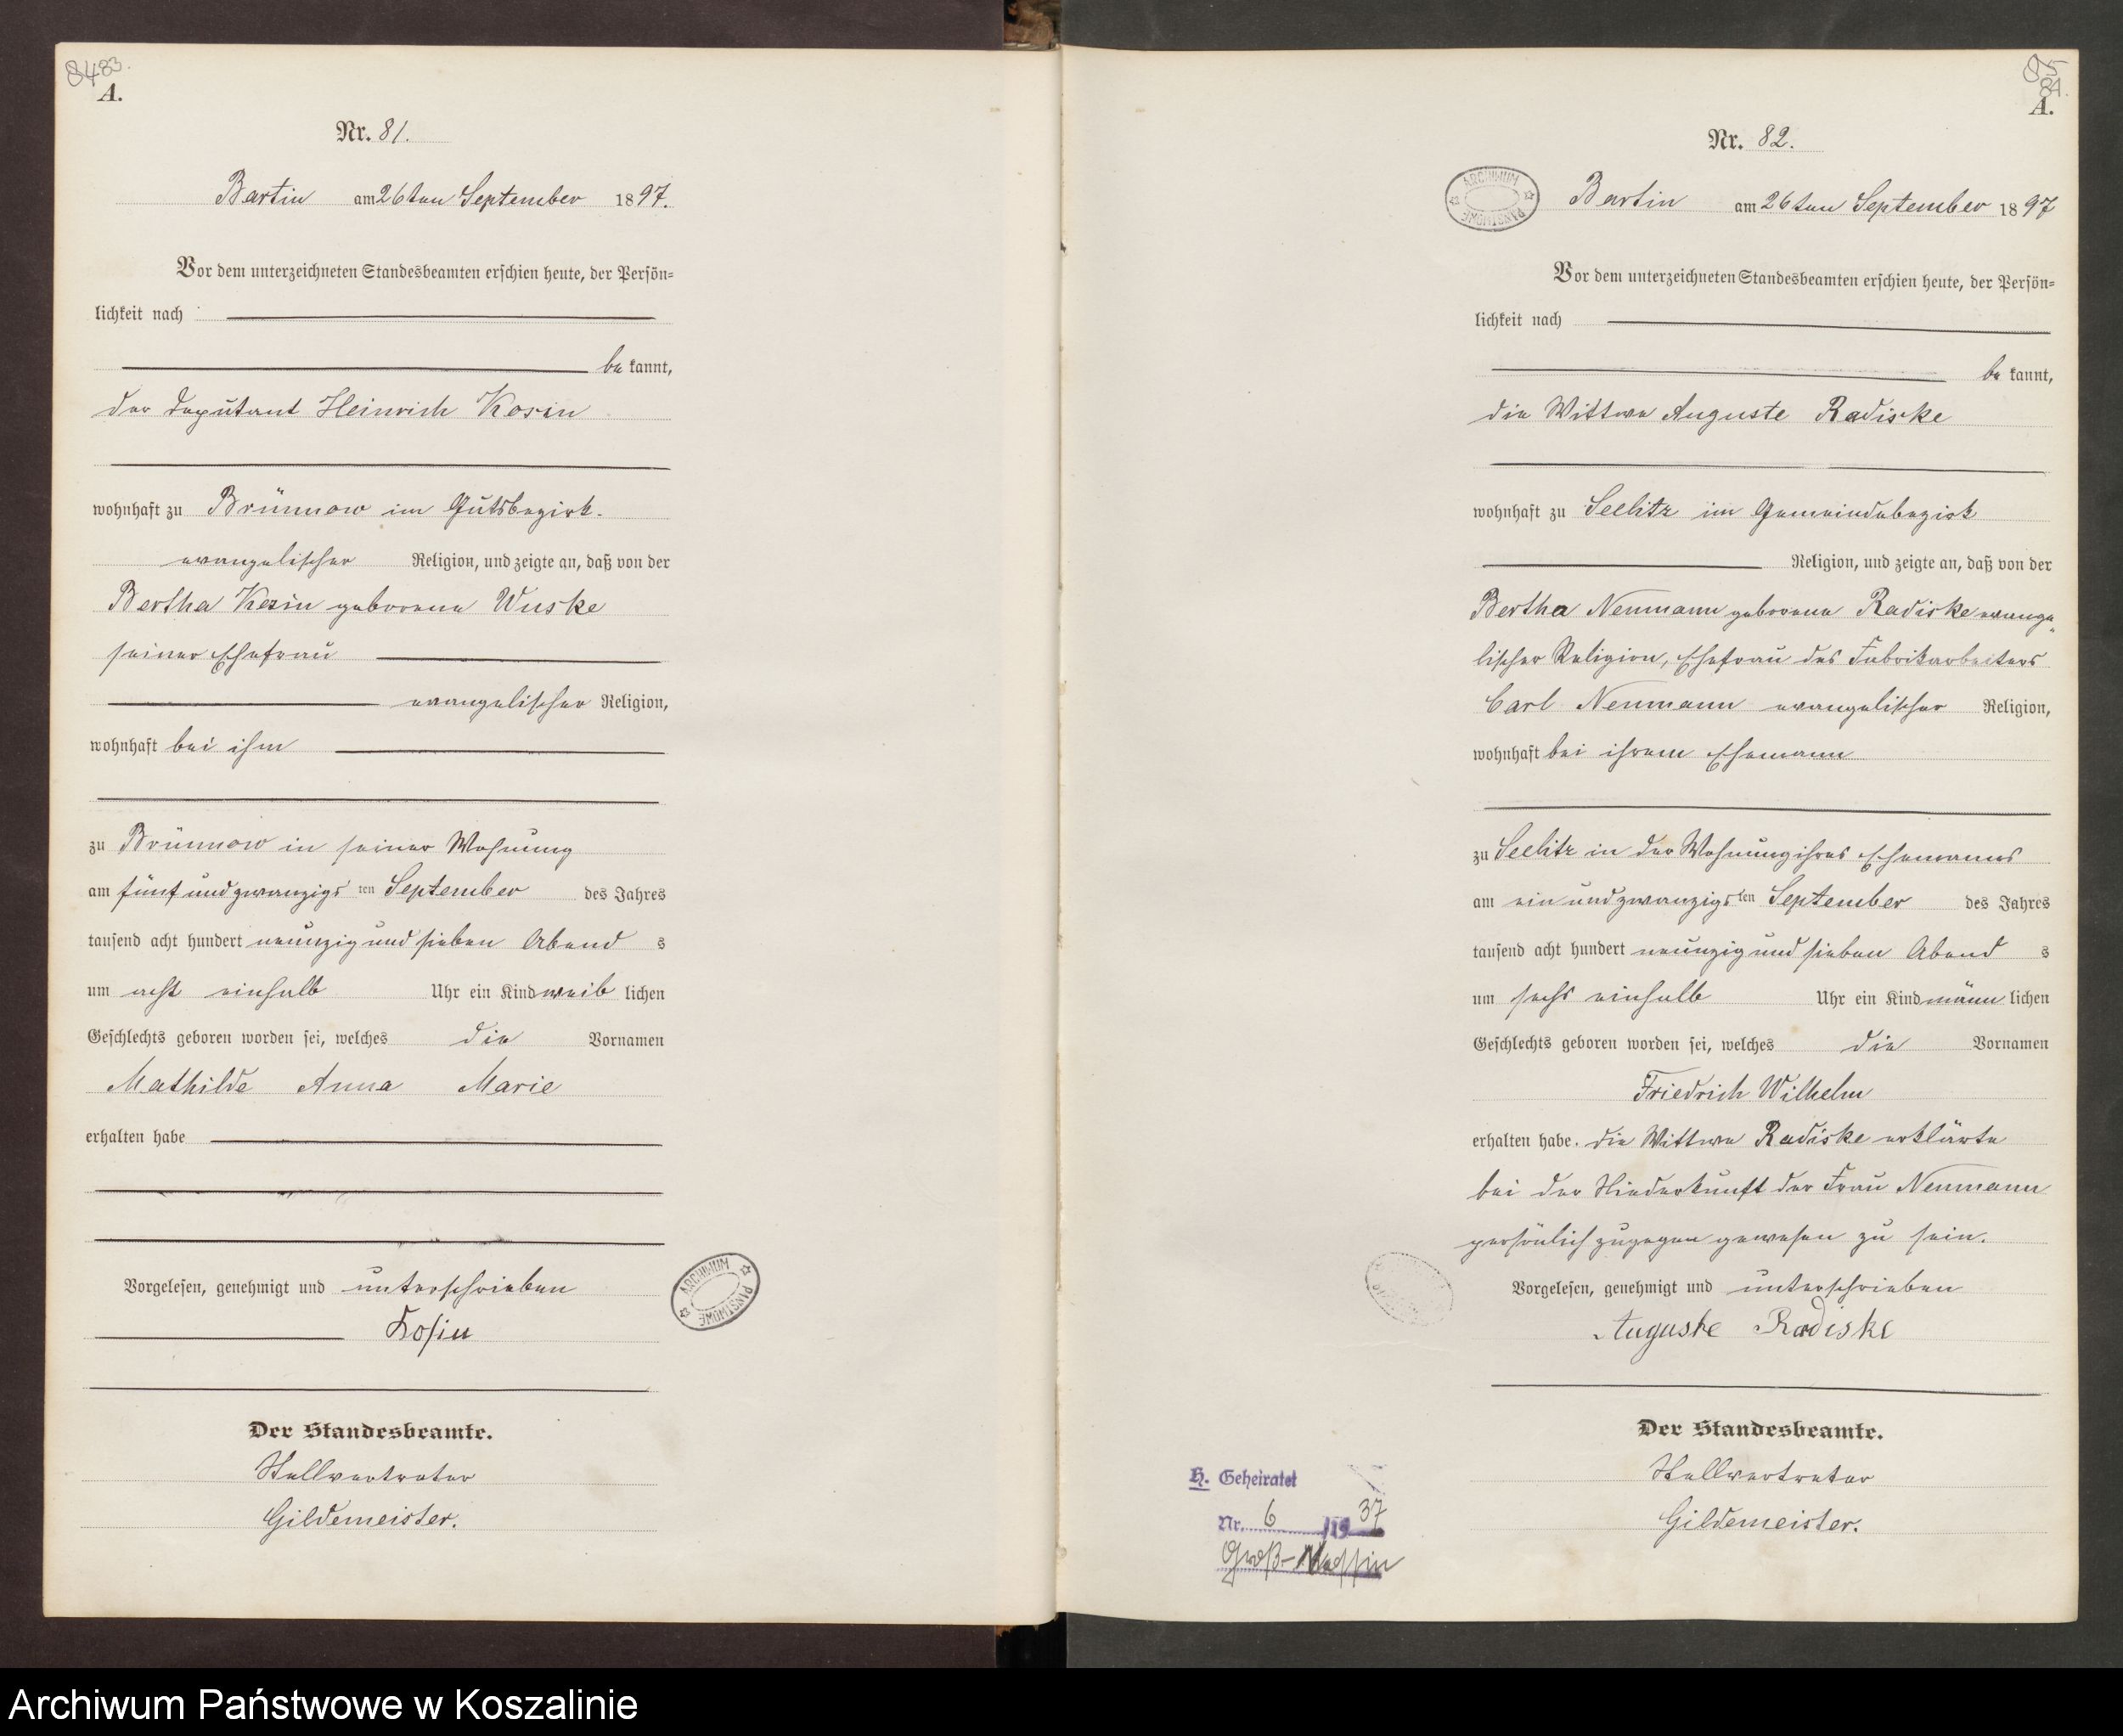 84 83.
A.
Nr. 81.
Bartin am 26ten September 1897.
Vor dem unterzeichneten Standesbeamten erschien heute, der Persön=
lichkeit nach
be kannt,
der Deputant Heinrich Kosin
wohnhaft zu Brünnow im Gutsbezirk.
evangelischer Religion, und zeigte an, daß von der
Bertha Kosin geborene Wuske
seiner Ehefrau
evangelischer Religion,
wohnhaft bei ihm
zu Brünnow in seiner Wohnung
am fünf und zwanzigs ten September des Jahres
tausend acht hundert neunzig und sieben Abend s
um acht einhalb Uhr ein Kind weib lichen
Geschlechts geboren worden sei, welches die Vornamen
Mathilde Anna Marie
erhalten habe
Vorgelesen, genehmigt und unterschrieben
Kosin
Der Standesbeamte.
Stellvertreter
Gildemeister.
ARCHIWUM PAŃSTWOWE
85
84.
A.
Nr. 82.
ARCHIWUM PAŃSTWOWE
Bartin am 26ten September 1897
Vor dem unterzeichneten Standesbeamten erschien heute, der Persön=
lichkeit nach
be kannt,
die Wittwe Auguste Radiske
wohnhaft zu Seelitz im Gemeindebezirk
Religion, und zeigte an, daß von der
Bertha Neumann geborene Radiske evange„
lischer Religion, Ehefrau des Fabrikarbeiters
Carl Neumann evangelischer Religion,
wohnhaft bei ihrem Ehemann
zu Seelitz in der Wohnung ihres Ehemannes
am ein und zwanzigs ten September des Jahres
tausend acht hundert neunzig und sieben Abend s
um sechs einhalb Uhr ein Kind männ lichen
Geschlechts geboren worden sei, welches die Vornamen
Friedrich Wilhelm
erhalten habe. die Wittwe Radiske erklärte
bei der Niederkunft der Frau Neumann
persönlich zugegen gewesen zu sein.
Vorgelesen, genehmigt und unterschrieben
Auguste Radiske
Der Standesbeamte.
Stellvertreter
Gildemeister.
H. Geheiratet
Nr. 6 /19 37
Groß-
Archiwum Państwowe w Koszalinie